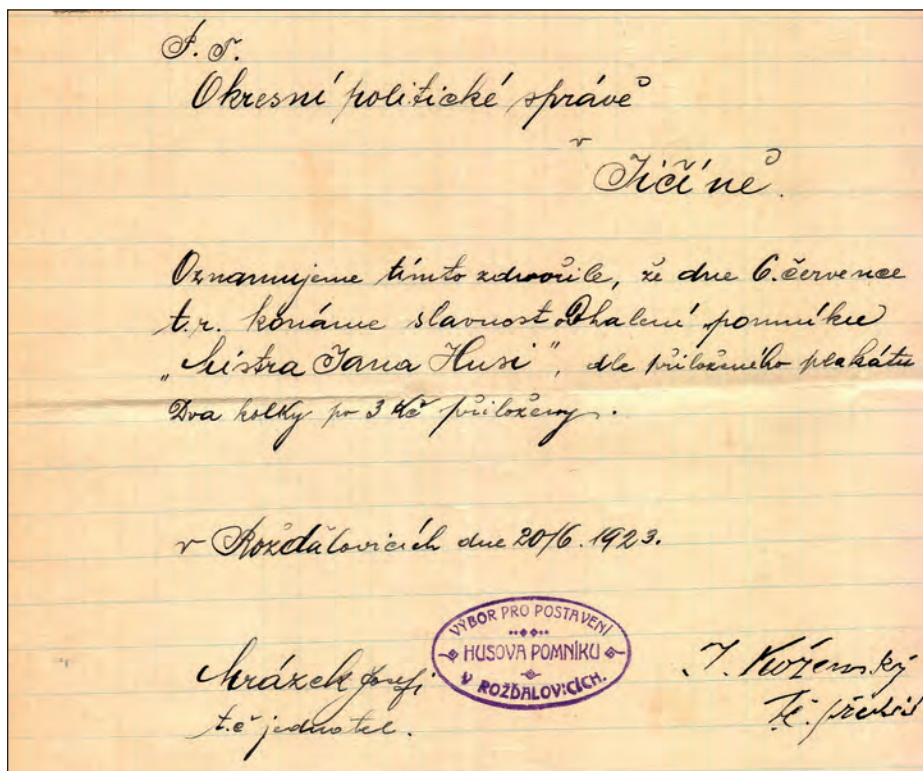 P. T.
Okresní politické správě
v
Jičíně.
Oznamujeme tímto zdvořile, že dne 6. července
t.r. konáme slavnost Odhalení pomníku
„Mistra Jana Husi", dle přiloženého plakátu
Dva kolky po 3 Kč přiloženy.
v Rožďálovicích dne 20/6. 1923.
VÝBOR PRO POSTAVENÍ
HUSOVA POMNÍKU
V ROŽĎALOVICÍCH.
Mrázek Josef
t.č jednatel.
t.č.